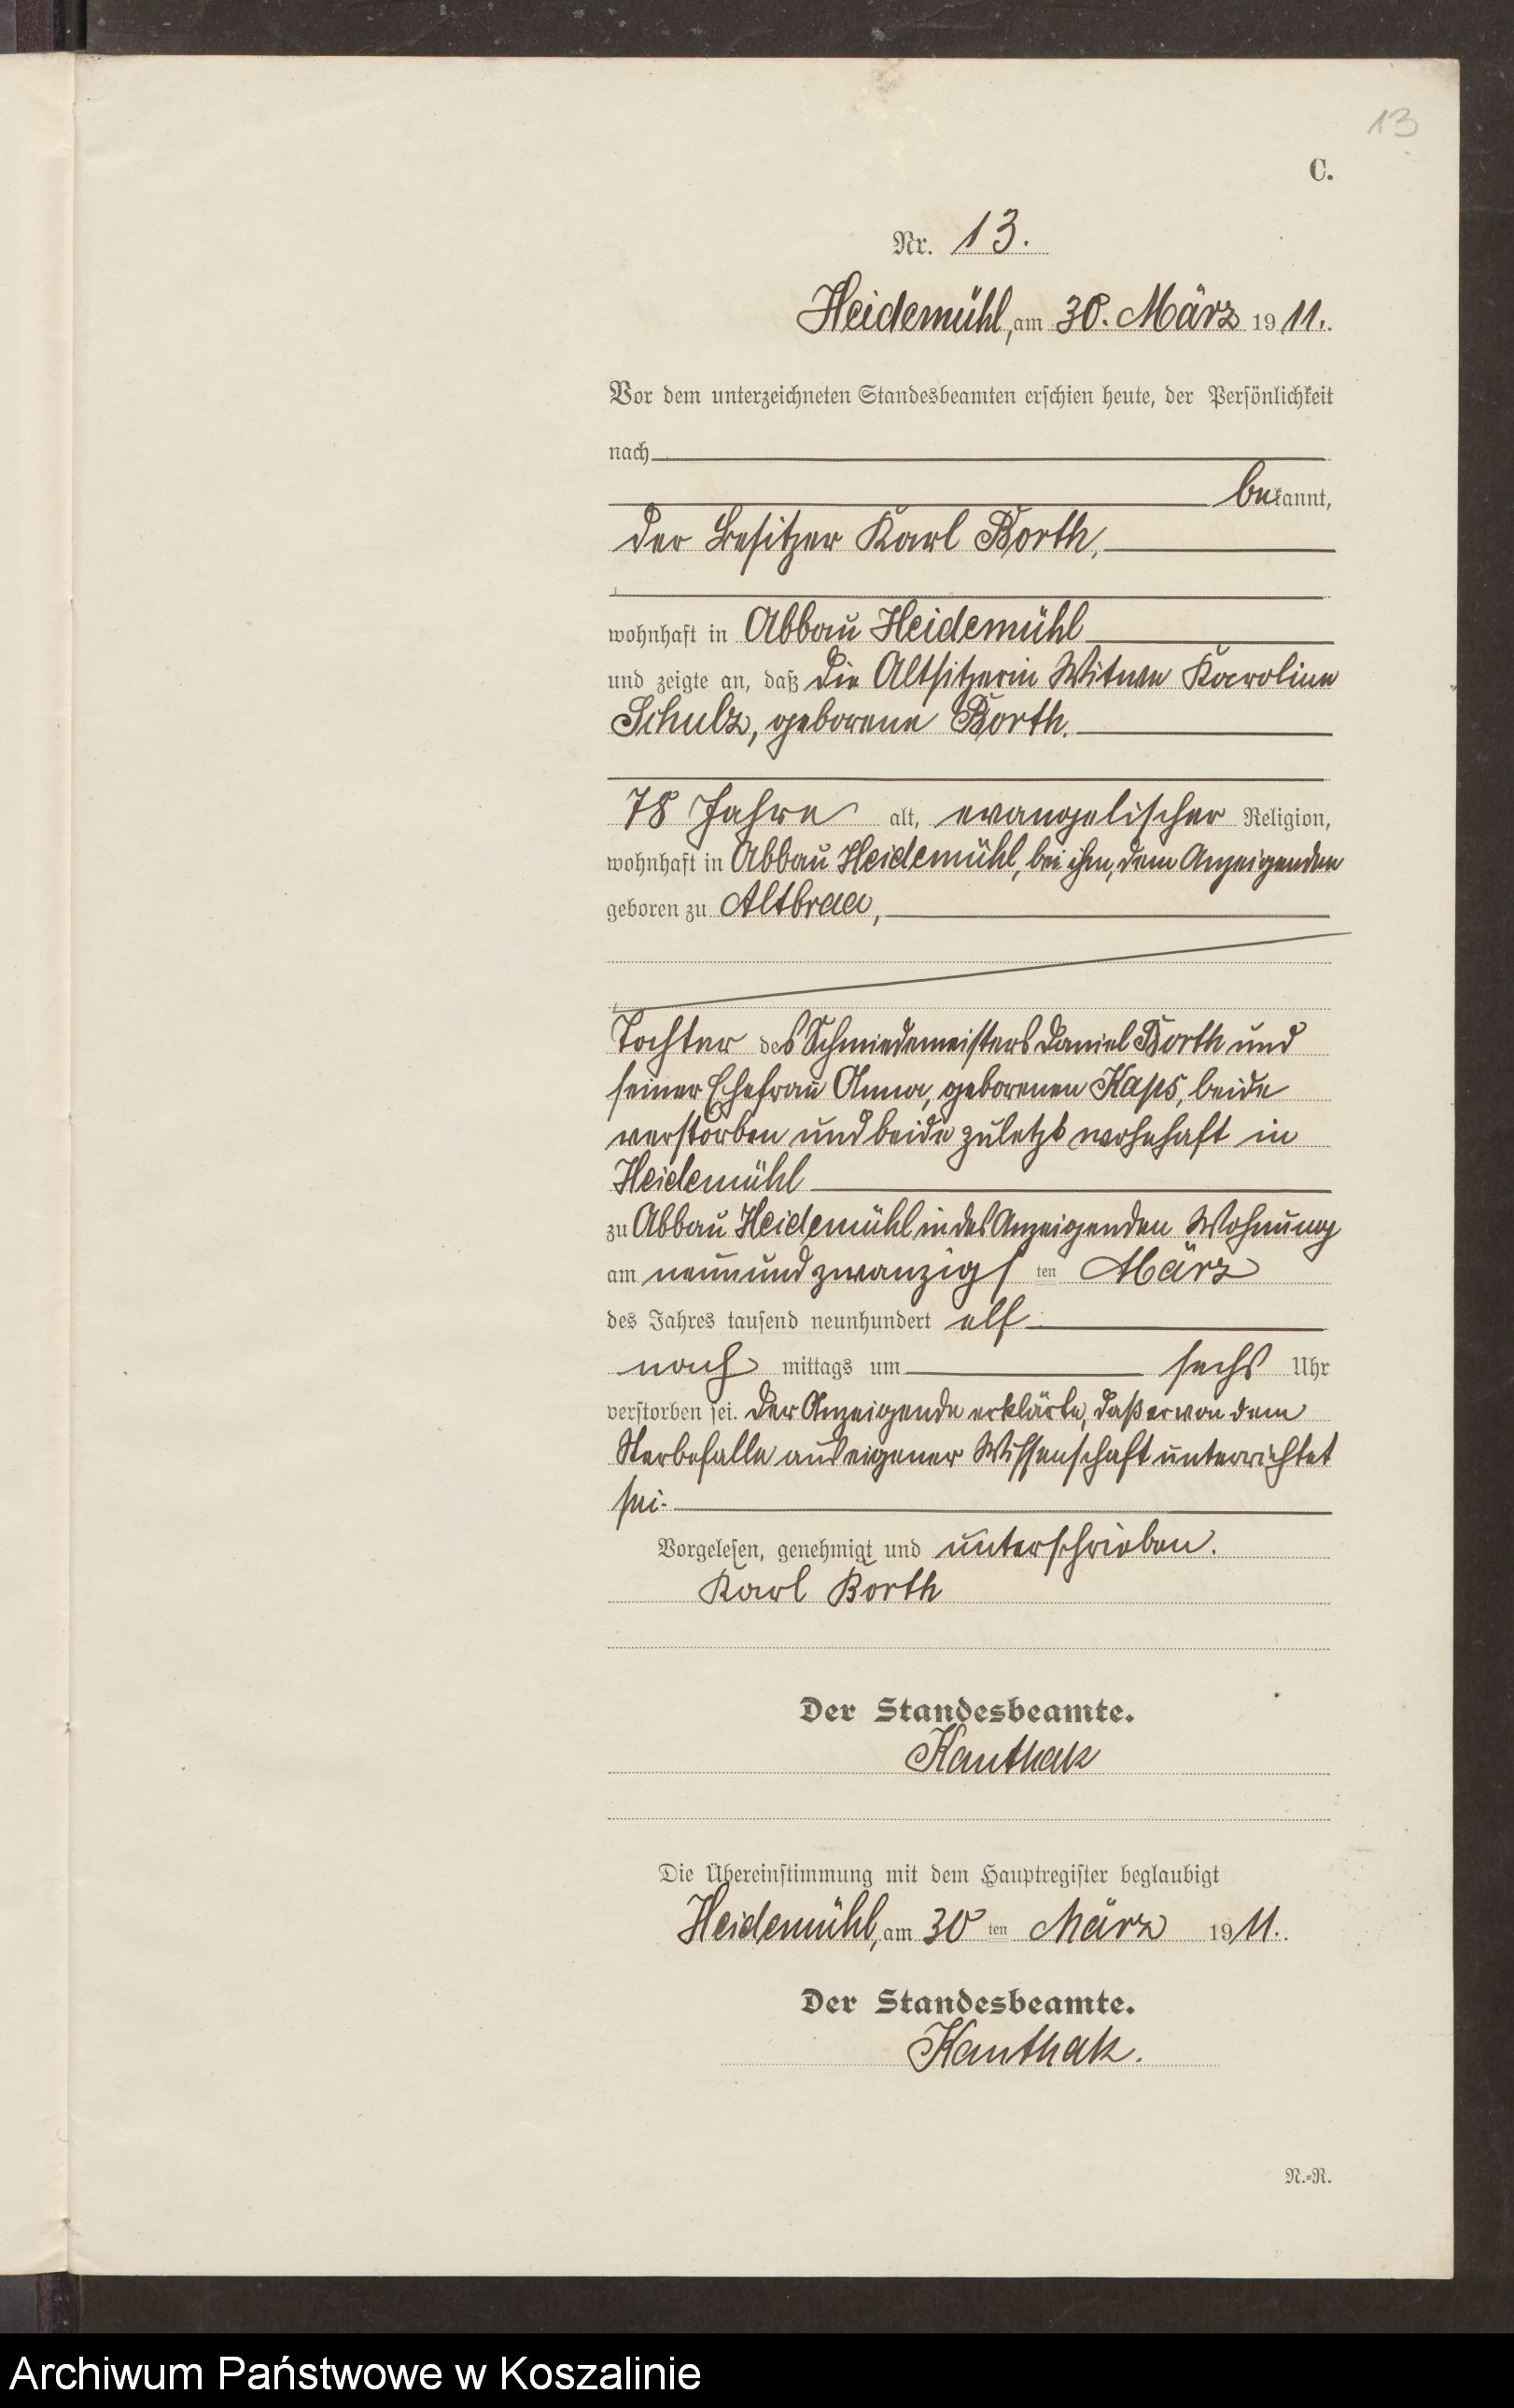 13
C.
Nr. 13.
Heidemühl, am 30. März 1911.
Vor dem unterzeichneten Standesbeamten erschien heute, der Persönlichkeit
nach
bekannt,
der Besitzer Karl Borth,
wohnhaft in Abbau Heidemühl
und zeigte an, daß die Altsitzerin Witwe Karoline
Schulz, geborene Borth.
78 Jahre alt, evangelischer Religion,
wohnhaft in Abbau Heidemühl, bei ihm, dem Anzeigenden
geboren zu Altbraa,
Tochter des Schmiedemeisters Daniel Borth und
seiner Ehefrau Anna, geborenen Kaps, beide
verstorben und beide zuletzt wohnhaft in
Heidemühl
zu Abbau Heidemühl in des Anzeigenden Wohnung
am neunundzwanzigsten März
des Jahres tausend neunhundert elf
nachmittags um sechs Uhr
verstorben sei. Der Anzeigende erklärte, daß er von dem
Sterbefalle aus eigener Wissenschaft unterrichtet
sei.
Vorgelesen, genehmigt und unterschrieben.
Karl Borth
Der Standesbeamte.
Kanthak
Die Übereinstimmung mit dem Hauptregister beglaubigt
Heidemühl, am 30ten März 1911.
Der Standesbeamte.
Kanthak.
N.-R.
Archiwum Państwowe w Koszalinie